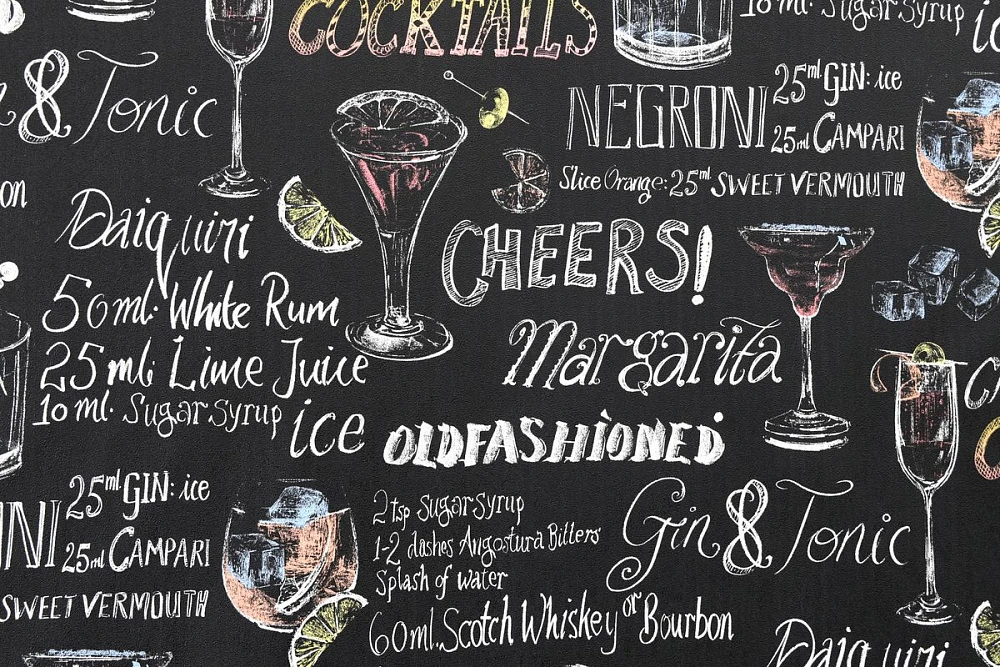 COCKTAILS
10 ml. Sugar Syrup
& Tonic
NEGRONI
25ml GIN: ice
25ml CAMPARI
Slice Orange: 25ml SWEET VERMOUTH
Daiquiri
50ml. White Rum
25 ml: Lime Juice
10 ml. Sugar Syrup
ice
CHEERS!
Margarita
OLDFASHIONED
2 tsp Sugar Syrup
1-2 dashes Angostura Bitters
Splash of water
60ml. Scotch Whiskey or Bourbon
Gin & Tonic
25ml GIN: ice
25ml CAMPARI
SWEET VERMOUTH
Daiquiri